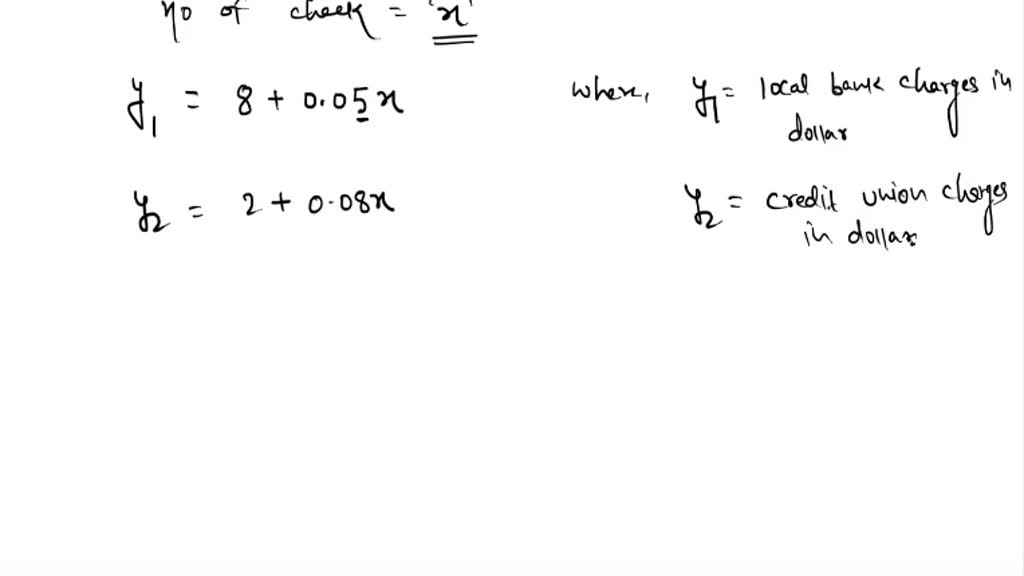 no of check = 'x'
y₁ = 8 + 0.05x
where, y₁ = local bank charges in
dollar
y₂ = 2 + 0.08x
y₂ = credit union charges
in dollar